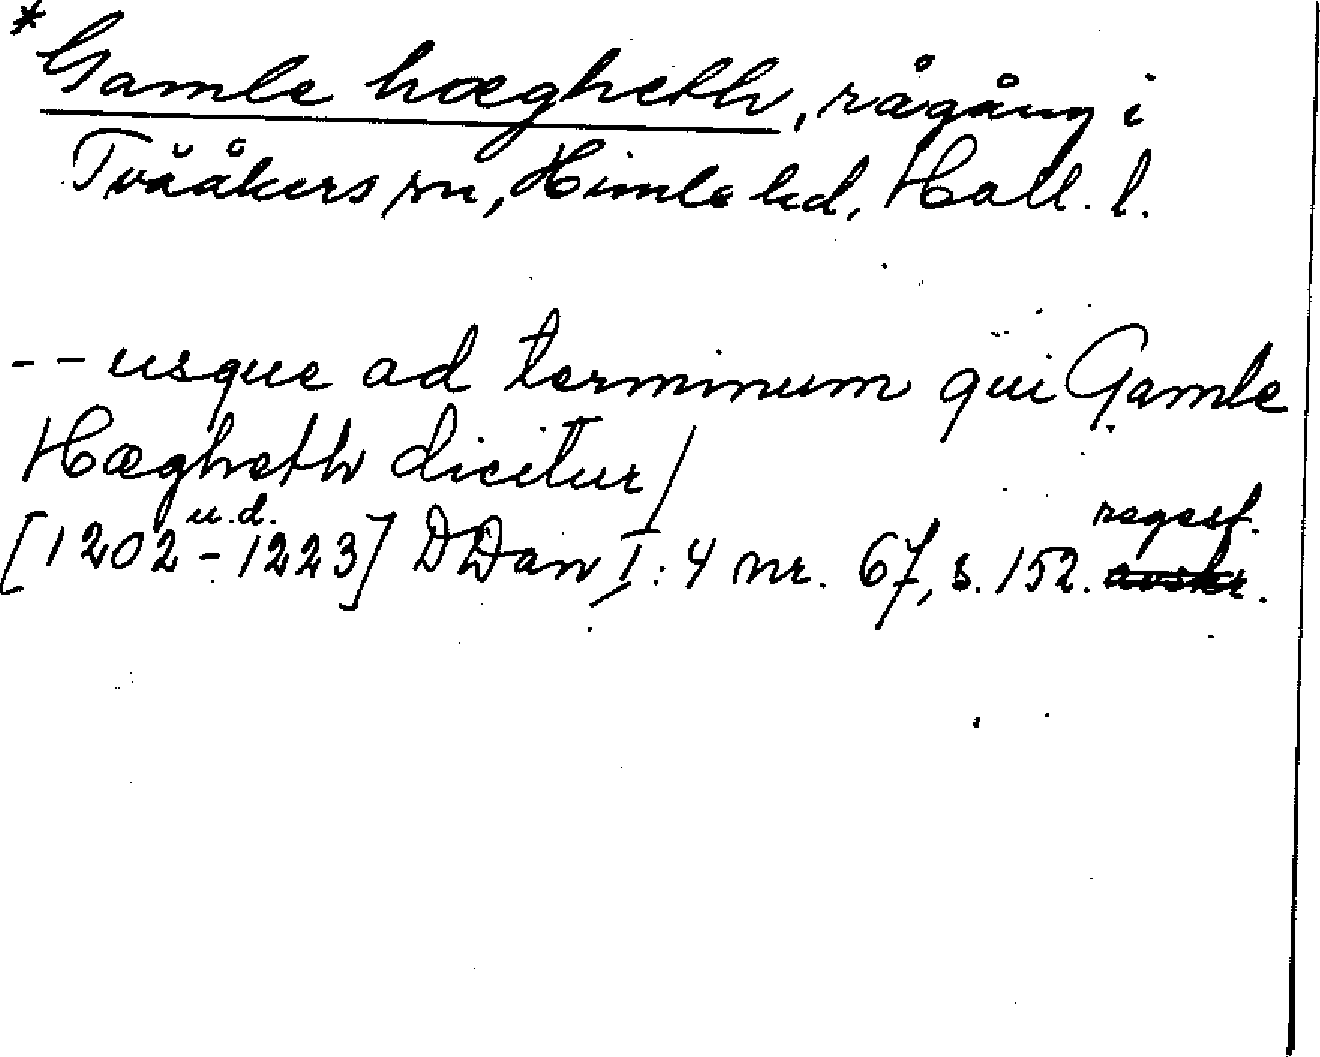 *Gamle hœgheth, rågång i
Tvååkers sn, Himle hd, Hall. l.
-- usque ad terminum qui Gamle
Hœgheth dicitur/
u.d. regest.
[1202-1223] DDan I:4 nr. 67, s. 152. avskr.